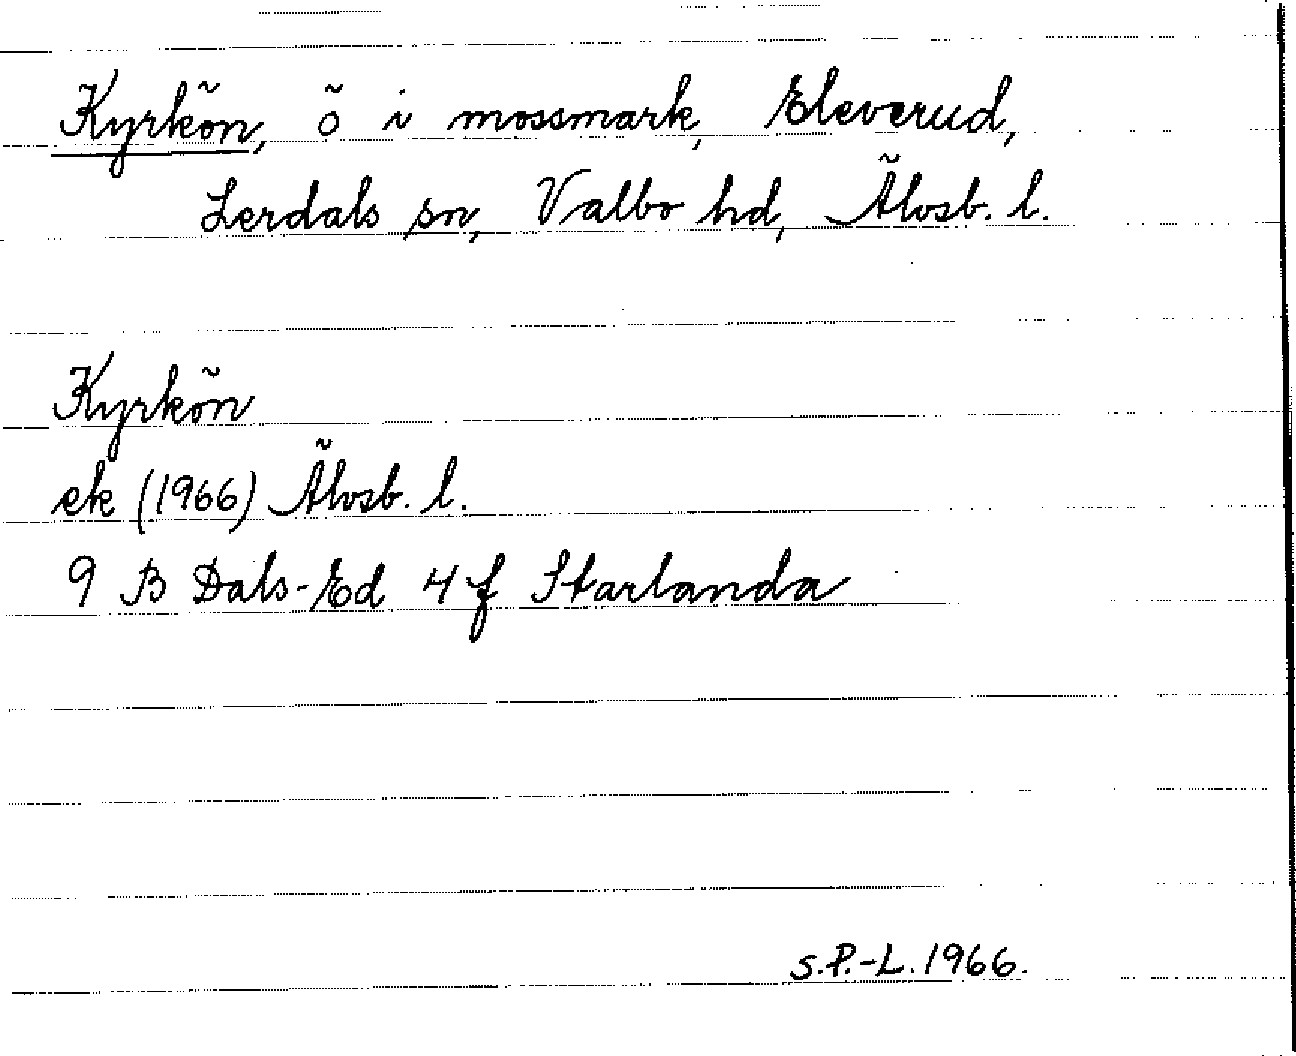 Kyrkön, ö i mossmark, Eleverud,
Lerdals sn, Valbo hd, Älvsb. l.
Kyrkön
ek (1966) Älvsb. l.
9 B Dals-Ed 4 f Starlanda
S.P.-L. 1966.